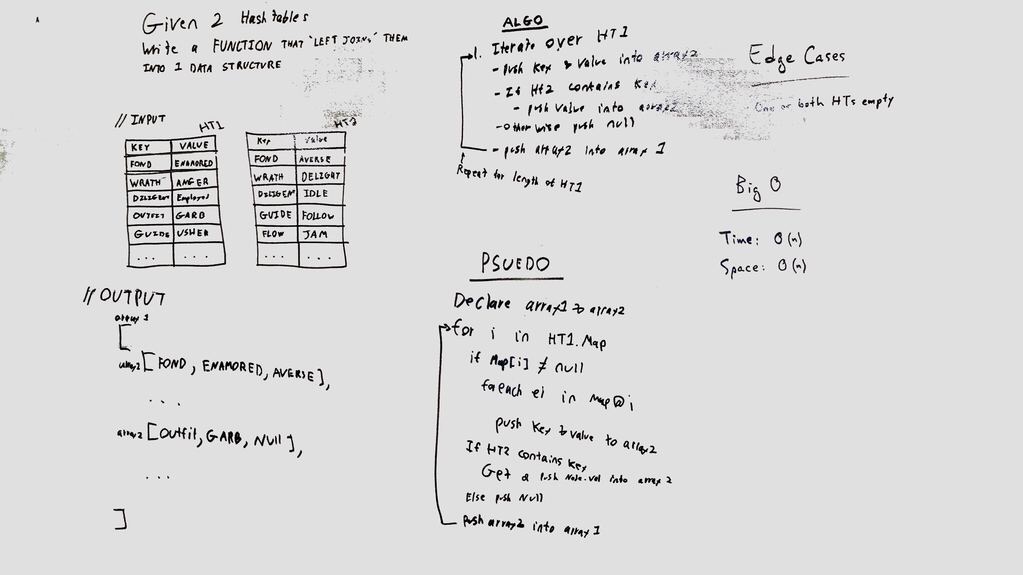 Given 2 Hashtables
Write a FUNCTION THAT "LEFT JOINS" THEM
INTO 1 DATA STRUCTURE
// INPUT
HT1
KEY VALUE
FOND ENAMORED
WRATH ANGER
DILIGENT Employed
OUTFIT GARB
GUIDE USHER
... ...
HT2
Key Value
FOND AVERSE
WRATH DELIGHT
DILIGENT IDLE
GUIDE FOLLOW
FLOW JAM
... ...
// OUTPUT
array 1
[
array2 [FOND, ENAMORED, AVERSE],
...
array2 [Outfit, GARB, Null],
...
]
ALGO
1. Iterate over HT1
- push Key & Value into array2
- If HT2 contains Key
- push Value into array2
- Otherwise push null
- push array2 into array 1
Repeat for length of HT1
PSUEDO
Declare array1 & array2
for i in HT1.Map
if Map[i] ≠ null
foreach ei in Map@i
push Key & value to array2
If HT2 contains Key
Get & push Node.Val into array 2
Else push Null
push array2 into array 1
Edge Cases
- One or both HTs empty
Big O
Time: O(n)
Space: O(n)